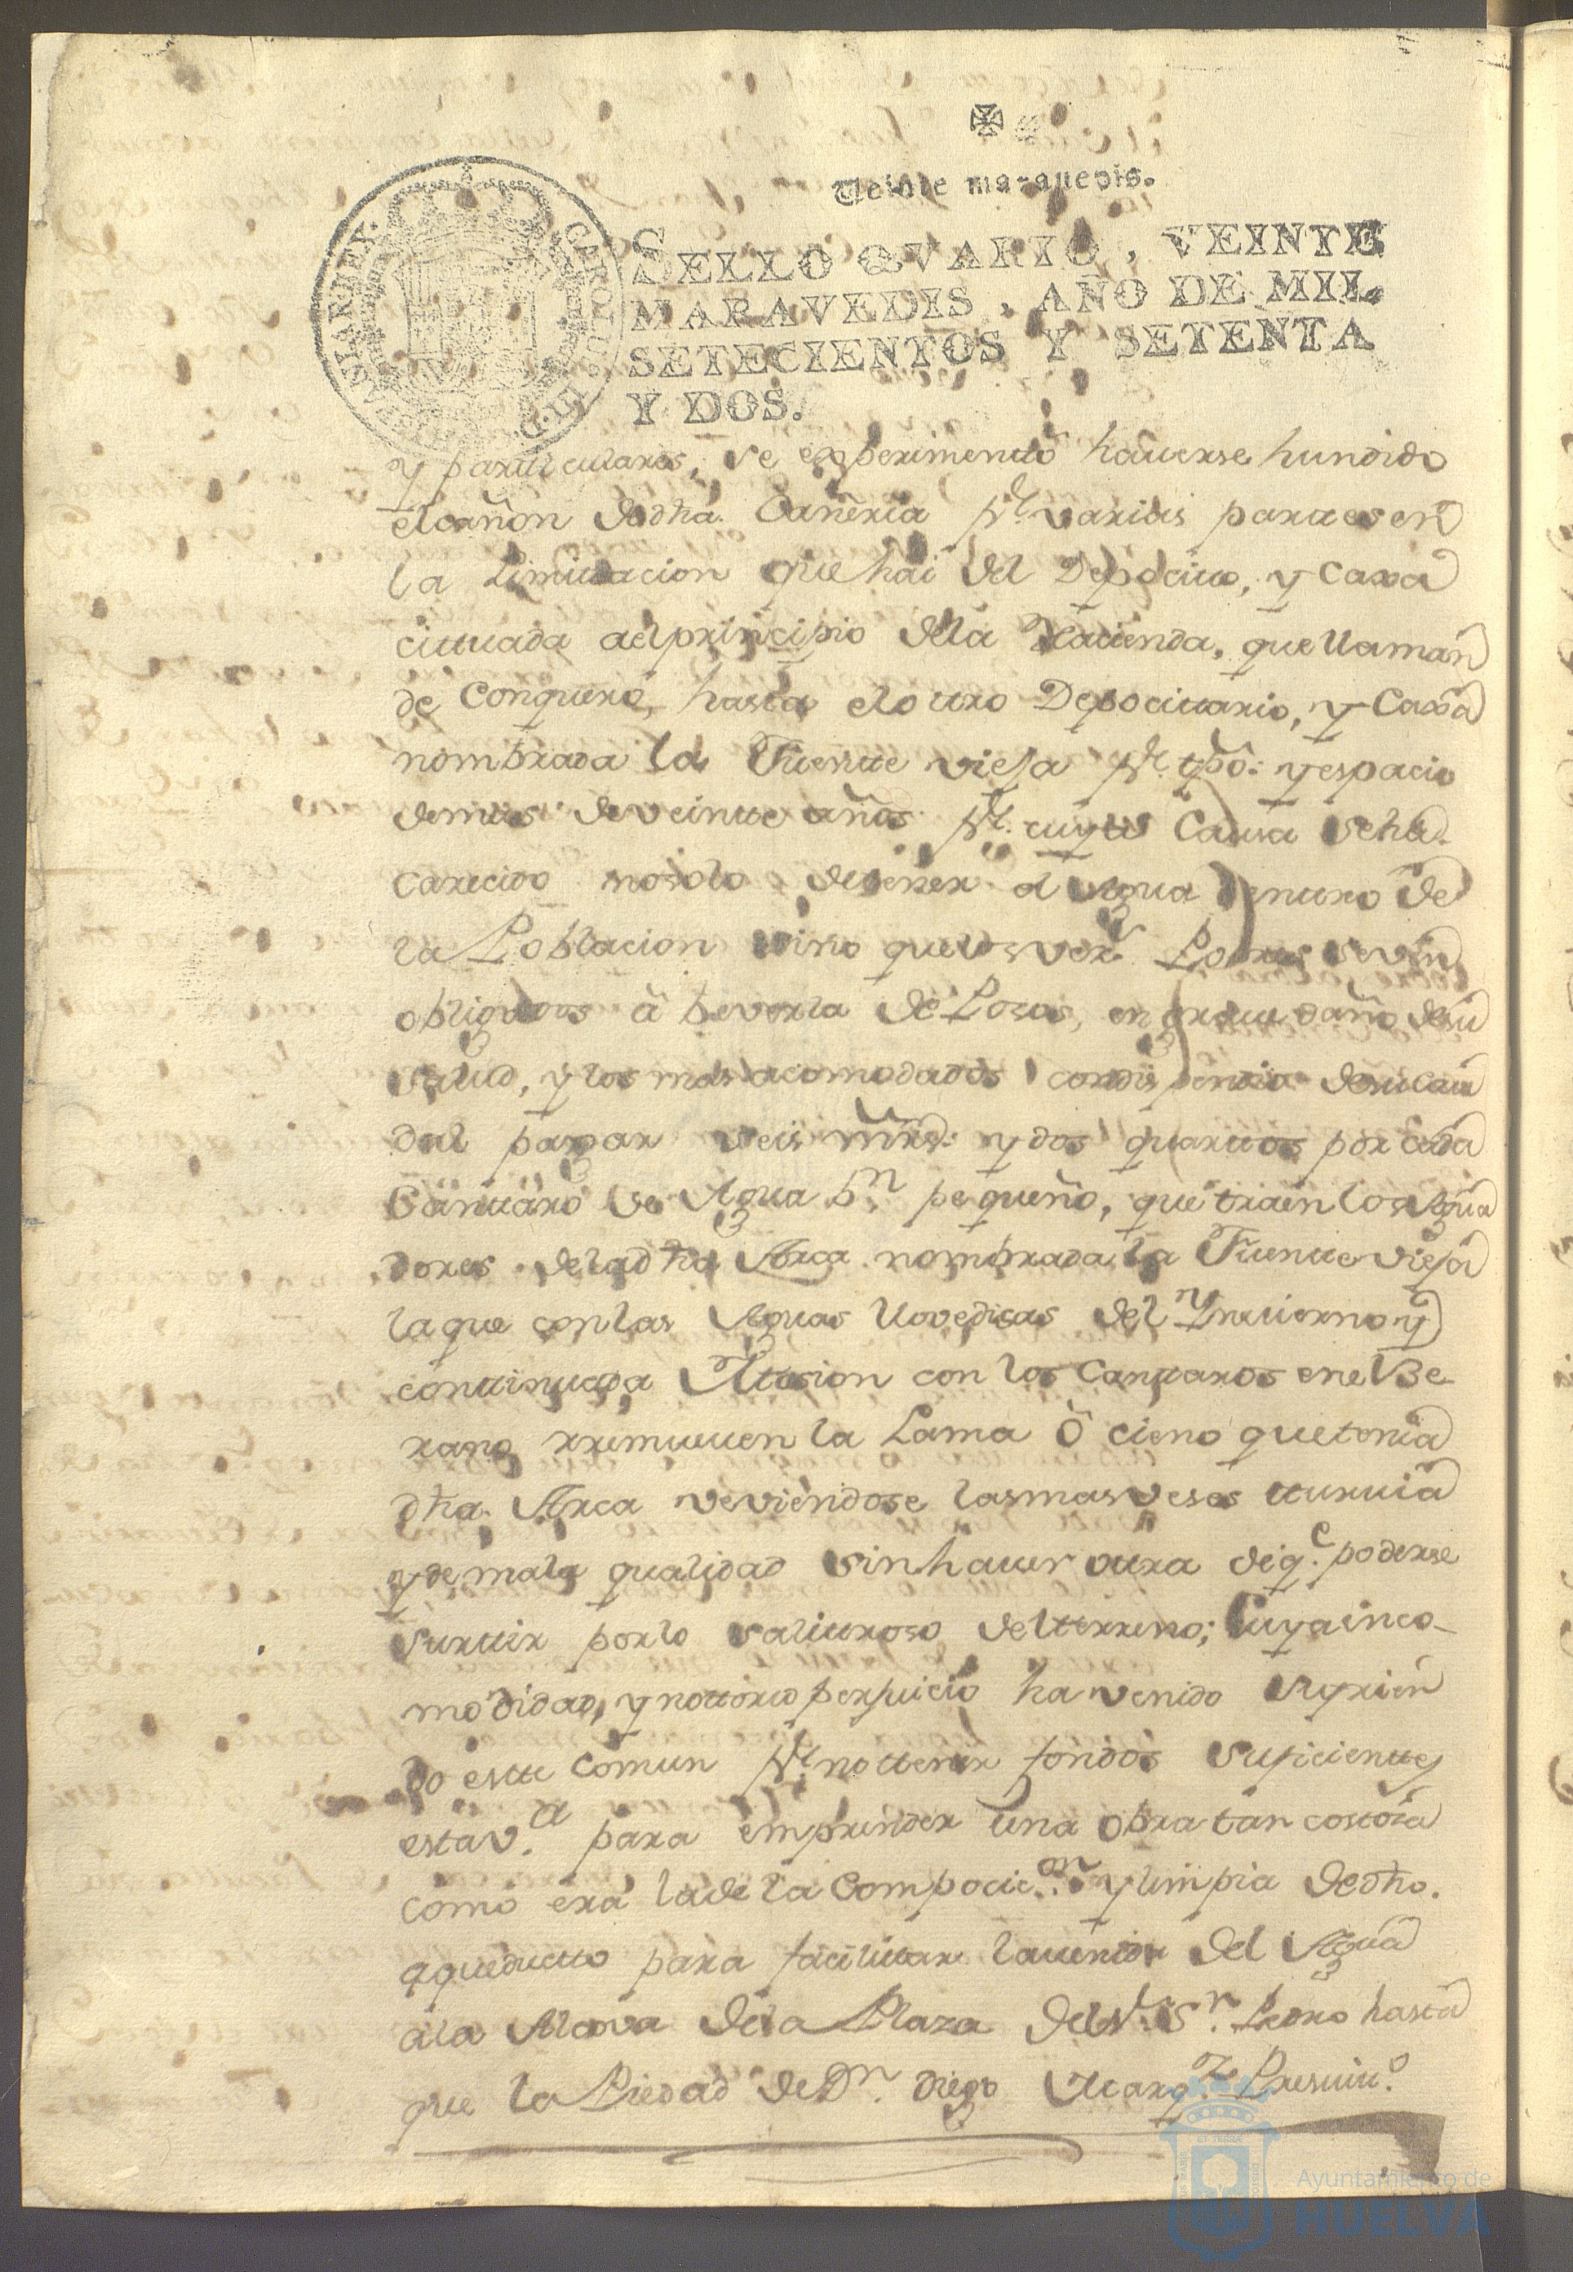 Veinte marauedis.
SELLO QVARTO, VEINTE
MARAVEDIS, AÑO DE MIL
SETECIENTOS Y SETENTA
Y DOS.
y particulares, se experimentó hauerse hundido
el cañon de dha. Cañeria pr. varias partes en
la Limitacion que hai del Depocito, y Caxa
cittuada al principio dela Hacienda, que llaman
de Conquero, hasta el otro Depocittario, y Caxa
nombrada la Fuentte vieja pr. tpô. y espacio
demas de veintte años pr. cuya Causa se ha
carecido no solo de tener el Agua dentro de
la Poblacion sino que los vezs. Pobres se vén
obligados â beverla de Posos, en grave daño de su
salud, y los mas acomodados con dispendio de su cau
dal pagar seis mrs. y dos quarttos por cada
Canttaro de Agua bn. pequeño, que traen los Agua
dores de la dha Arca nombrada la Fuentte vieja
la que con las Aguas llovedisas del Ynvierno y
conttinuada con los Canttaros en el Be
rano rremueven la Lama ô cieno que tenia
dha. Arca veviendose las mas veses tturvia
y de mala qualidad sin hauer otra de qe. poderse
surttir por lo salittroso del tterreno; Cuya inco-
modidad, y nottorio perjuicio ha venido sufrien
do estte Comun pr. no ttener fondos suficienttes
esta va. para emprender una obra tan costosa
como era la de la Compocicon. y limpia de dho.
aqueductto para facilittar la venida del Agua
a la Alcova de la Plaza del Sr. Sn. Pedro hasta
que la Piedad de Dn. Diego Marqz. Presvito.
Ayuntamiento de
HUELVA